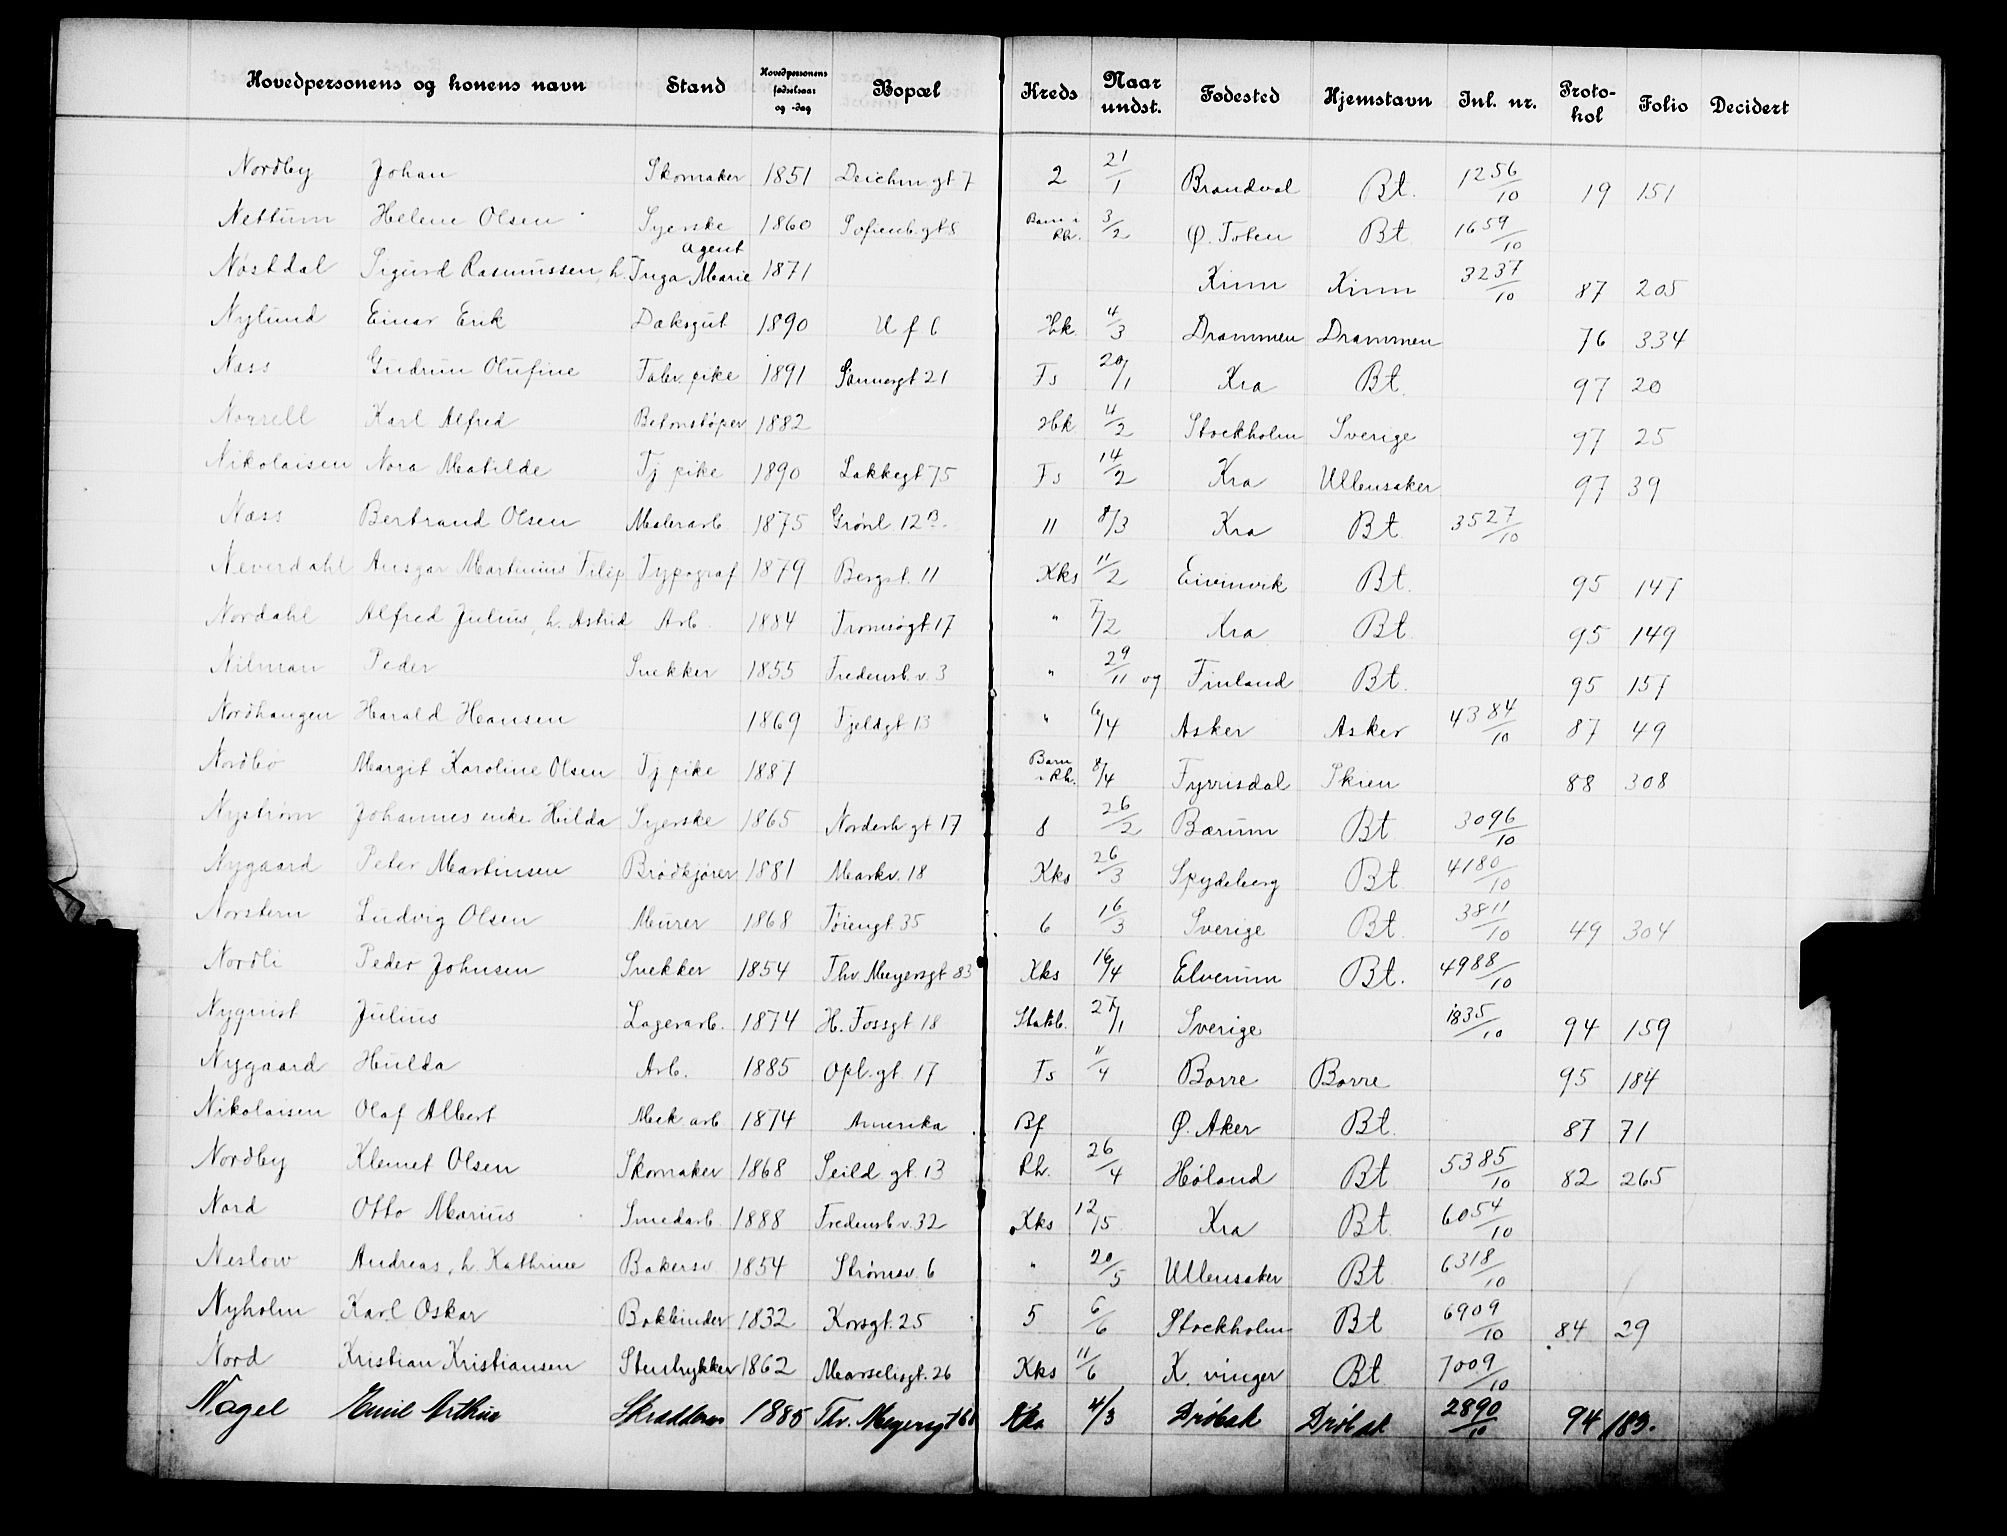 Hovedpersonens og konens navn Stand Hovedpersonens fødselsaar og -dag Bopæl Kreds Naar undst. Fødested Hjemstavn Inl. nr. Proto-kol Folio Decidert
Nordby Johan Skomaker 1851 Deichm gt 7 2 21/1 Brandval Bt. 1256/10 19 151
Nettum Helene Olsen Syerske 1860 Sofienb. gt 8 Barn i Rh. 3/2 Ø. Toten Bt 1659/10
Nøstdal Sigurd Rasmussen, h. Inga Marie Agent 1871 Kinn Kinn 3237/10 87 205
Nylund Einar Erik Dæksgut 1890 U f 6 Hk. 4/3 Drammen Drammen 76 334
Næss Gudrun Olufine Fabr. pike 1891 Sannergt 21 Fs 20/1 Kra Bt. 97 20
Norrell Karl Alfred Betonstøper 1882 Hk 4/2 Stockholm Sverige 97 25
Nikolaisen Nora Matilde Tj pike 1890 Lakkegt 75 Fs 14/2 Kra Ullensaker 97 39
Næss Bertrand Olsen Malerarb. 1875 Grønl. 12 B. 11 8/3 Kra Bt. 3527/10
Neverdahl Ansgar Martinius Filip Typograf 1879 Bergst. 11 Kks 11/2 Eivinvik Bt. 95 147
Nordahl Alfred Julius, h. Astrid Arb. 1884 Tromsøgt 17 " 7/2 Kra Bt. 95 149
Nilman Peder Snekker 1855 Fredensb. v. 3 " 29/11 09 Finland Bt. 95 157
Nordhaugen Harald Hansen 1869 Fjeldgt 13 " 6/4 Asker Asker 4384/10 87 49
Nordbø Margit Karoline Olsen Tj pike 1887 Barn i Rh. 8/4 Fyrrisdal Skien 88 308
Nystrøm Johannes enke Hulda Syerske 1865 Norderh gt 17 8 26/2 Bærum Bt 3096/10
Nygaard Peter Martinsen Brødkjører 1881 Markv. 18 Kks 26/3 Spydeberg Bt. 4180/10
Norstern Ludvig Olsen Murer 1868 Tøiengt. 35 6 16/3 Sverige Bt. 3811/10 49 304
Nordli Peder Johnsen Snekker 1854 Thv. Meyersgt 83 Kks 16/4 Elverum Bt. 4988/10
Nyquist Julius Lagerarb. 1874 H. Fossgt 18 Statsb. 27/1 Sverige 1835/10 94 159
Nygaard Hulda Arb. 1885 Opl. gt. 17 Fs 11/4 Borre Borre 95 184
Nikolaisen Olaf Albert Mek arb 1874 Amerika Bf Ø. Aker Bt. 87 71
Nordby Klemet Olsen Skomaker 1868 Seild gt. 13 Rh. 26/4 Høland Bt 5385/10 82 265
Nord Otto Marius Smedarb. 1888 Fredensb v. 32 Kks 12/5 Kra Bt. 6054/10
Neslow Andreas, h. Kathrine Bakersv. 1854 Strømsv. 6 " 20/5 Ullensaker Bt. 6318/10
Nyholm Karl Oskar Bokbinder 1832 Korsgt. 25 5 6/6 Stockholm Bt 6909/10 84 29
Nord Kristian Kristiansen Stentrykker 1862 Marselisgt. 26 Kks 11/6 K. vinger Bt. 7009/10
Nagel Emil Arthur Skrædder 1885 Thv. Meyersgt 61 4/3 Drøbak Drøbak 2890/10 94 183.